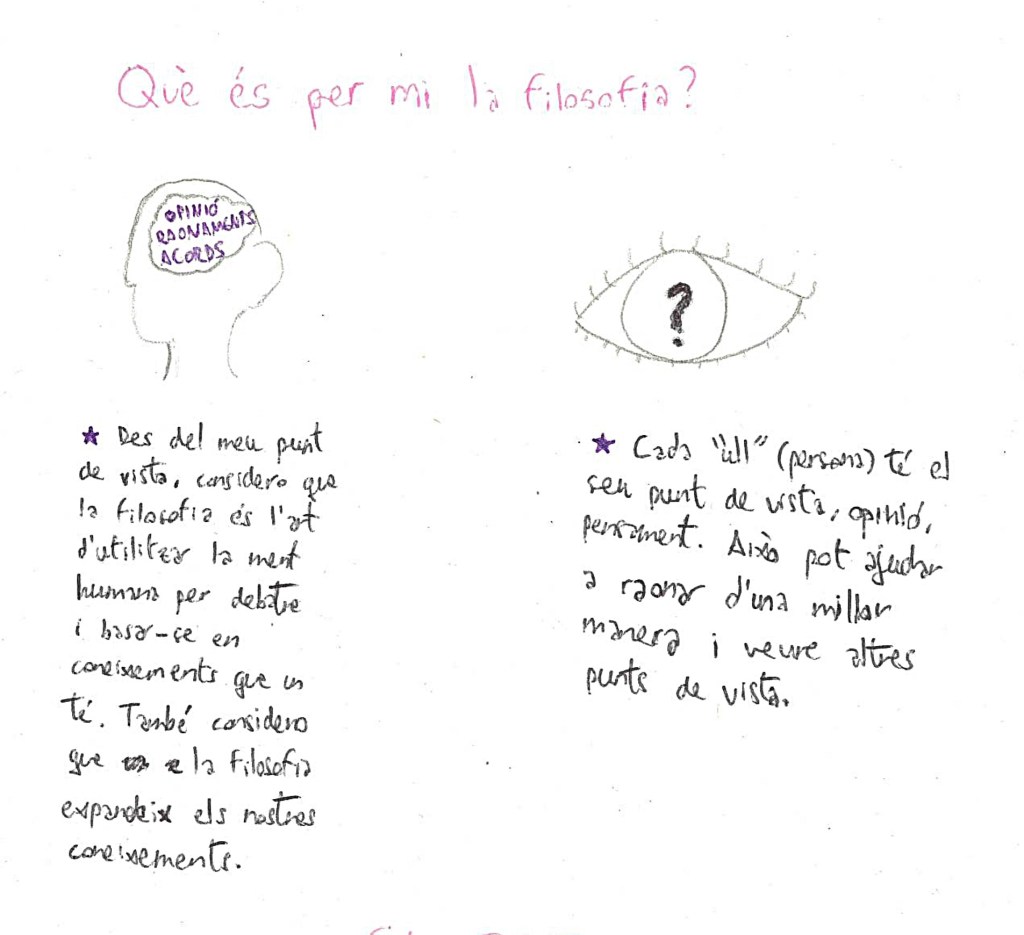 Què és per mi la filosofia?
OPINIÓ
RAONAMENTS
ACORDS
?
★ Des del meu punt
de vista, considero que
la filosofia és l'art
d'utilitzar la ment
humana per debatre
i basar-se en
coneixements que un
té. També considero
que la filosofia
expandeix els nostres
coneixements.
★ Cada "ull" (persona) té el
seu punt de vista, opinió,
pensament. Això pot ajudar
a raonar d'una millor
manera i veure altres
punts de vista.